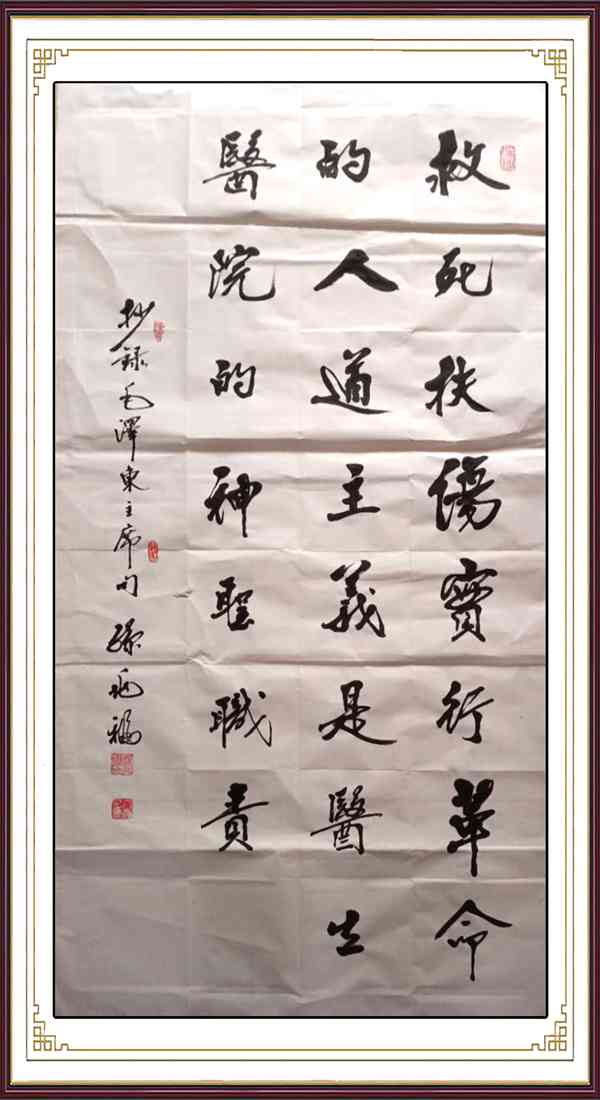 救死扶傷實行革命
的人道主義是醫生
醫院的神聖職責
抄錄毛澤東主席句 孫兆福